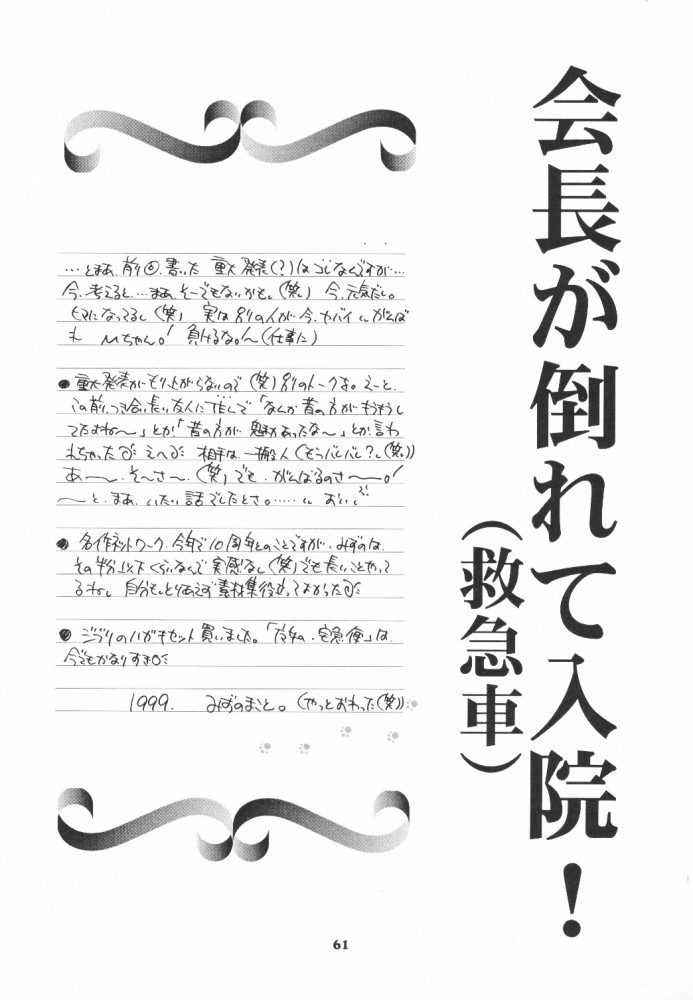 会長が倒れて入院！
（救急車）
…とまあ、前回書いた 重大発表(?)はコレなんですが…
今、考えると…まあ、そーでもないかも。(笑) 今、元気だし。
ヒマになってるし(笑) 実は別の人が今、ヤバイ がんば
れ Mちゃん！ 負けるな。〜(仕事に)
●重大発表がもり上がらないので (笑)別のトークを。えーと、
この前、つき合い長い友人に 「なんか昔の方がもうもうし
てたよね〜」とか「昔の方が 魅力あったな〜」とか言わ
れちゃった えへ 相手は、一般人(そうバレバレ?。(笑))
あ〜、そ〜さ〜、(笑)でも、がんばるのさ〜。！
〜と、まあ、いたい話でしたとさ。…… おい
●名作ネットワーク、今年で10周年とのことですが、みずのは、
その半分以下くらいなんで実感なし(笑)でも長いことやって
るねぇ 自分もとりあえず素材集役立ってよかった
●ジブリのハガキセット買いました。「魔女の宅急便」は、
今でもかなりすき
1999. みずのまこと。(やっとおわった(笑))
61